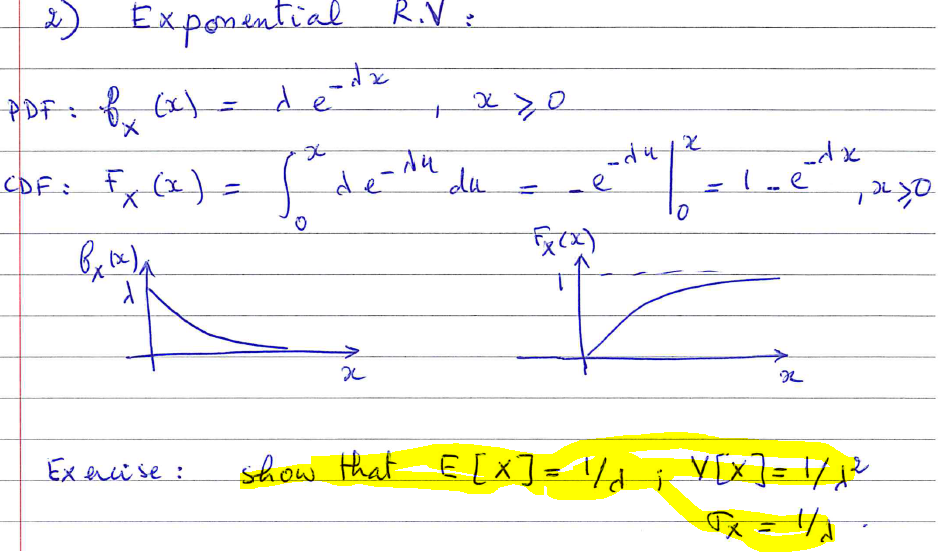 2) Exponential R.V:
PDF: f_X (x) = λ e^{-λx} , x ≥ 0
CDF: F_X (x) = ∫_0^x λ e^{-λu} du = -e^{-λu} |_0^x = 1 - e^{-λx} , x ≥ 0
f_X (x)
λ
x
F_X (x)
1
x
Exercise: show that E[X] = 1/λ ; V[X] = 1/λ²
σ_X = 1/λ .